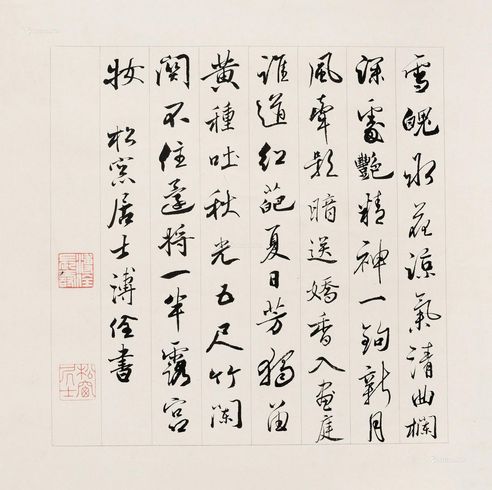 雪魄冰花涼氣清曲欄
深處豔精神一鉤新月
風牽影暗送嬌香入畫庭
誰道紅葩夏日芳獨留
黃種吐秋光五尺竹闌
関不住還將一半露宮
妝 松窓居士溥佺書
松窗居士